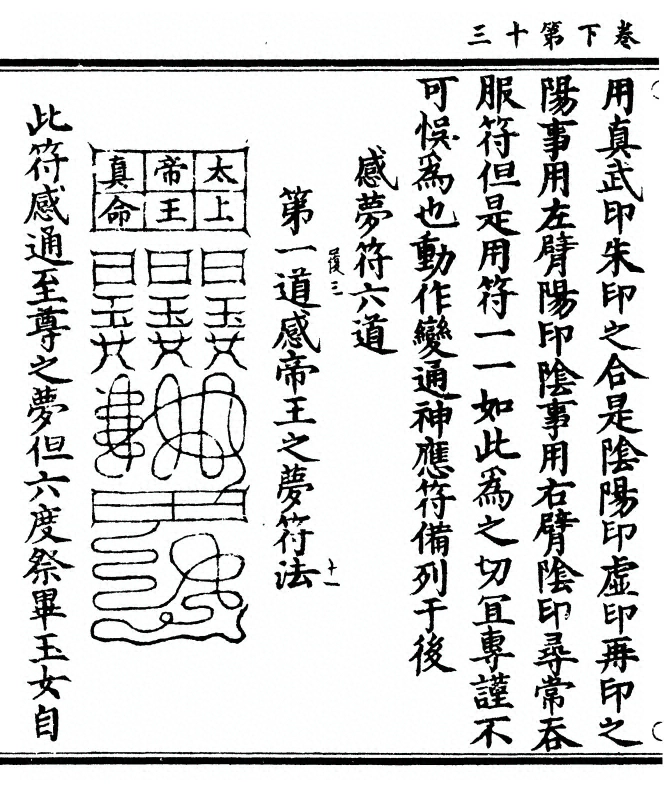 卷下第十三
用真武印朱印之合是陰陽印虛印再印之
陽事用左臂陽印陰事用右臂陰印尋常吞
服符但是用符一一如此為之切冝專謹不
可悞為也動作變通神應符備列于後
感夢符六道
第一道感帝王之夢符法
太上
帝王
真命
日日日
玉玉玉
女女女
此符感通至尊之夢但六度祭畢玉女自